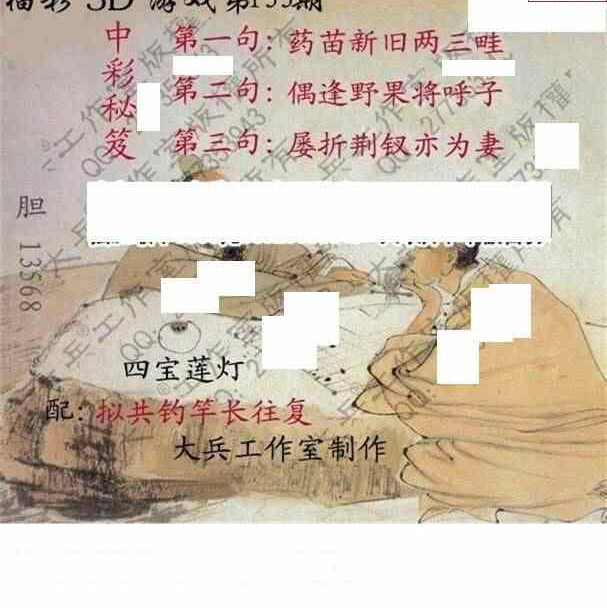 福彩 3D 游戏第155期
中彩秘笈
第一句：药苗新旧两三畦
第二句：偶逢野果将呼子
第三句：屡折荆钗亦为妻
胆 13568
四宝莲灯
配：拟共钓竿长往复
大兵工作室制作